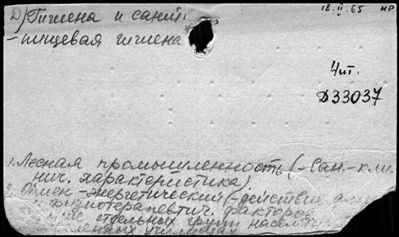 18.II.65 НР
D) Гигиена и санит.
- пищевая гигиена
4т.
D33037
1. Лесная промышленность (-Сан.-кли-
нич. характеристика).
2. Обмен-энергетический (-действия
физиотерапевтич. факторов
отдельных групп насел.